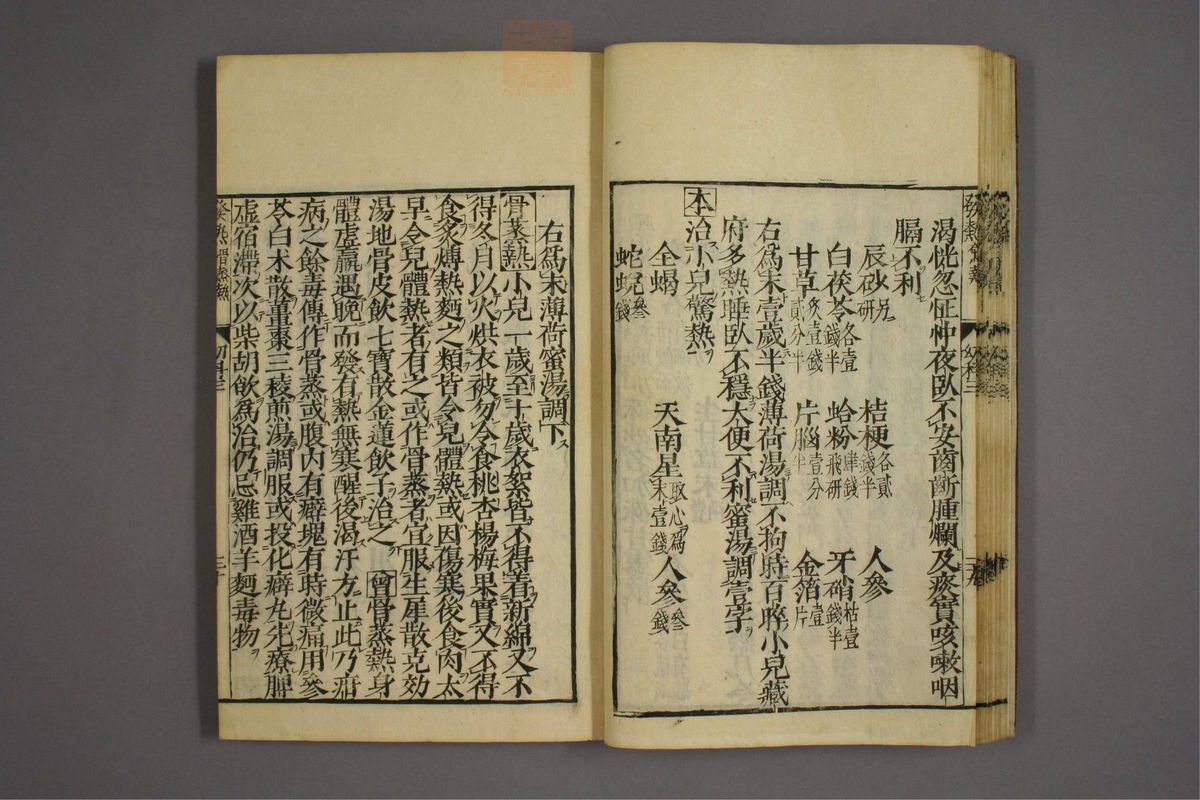 渴恍忽怔忡夜臥不安齒齗腫爛及痰實咳嗽咽
膈不利
辰砂研 桔梗各貳錢半 人參
白茯苓各壹錢半 蛤粉肆錢飛研 牙硝枯壹錢半
甘草炙壹錢貳分半 片腦壹分半 金箔壹片
右爲末壹歲半錢薄荷湯調不拘時百晬小兒藏
府多熱睡臥不穩大便不利蜜湯調壹字
本治小兒驚熱
全蝎 天南星取心爲末壹錢 人參叁錢
蛇蛻叁錢
右爲末薄荷蜜湯調下
骨蒸熱小兒一歲至十歲衣絮皆不得着新綿又不
得冬月以火烘衣被勿令食桃杏楊梅果實又不得
食炙煿熱麵之類皆令兒體熱或因傷寒後食肉太
早令兒體熱者有之或作骨蒸者宜服生犀散克効
湯地骨皮飲七寶散金蓮飲子治之曾骨蒸熱身
體虛羸遇晚而發有熱無寒醒後渴汗方止此乃疳
病之餘毒傳作骨蒸或腹內有癖塊有時微痛用參
苓白朮散薑棗三稜煎湯調服或投化癖丸先療脾
虛宿滯次以柴胡飲爲治仍忌雞酒羊麵毒物